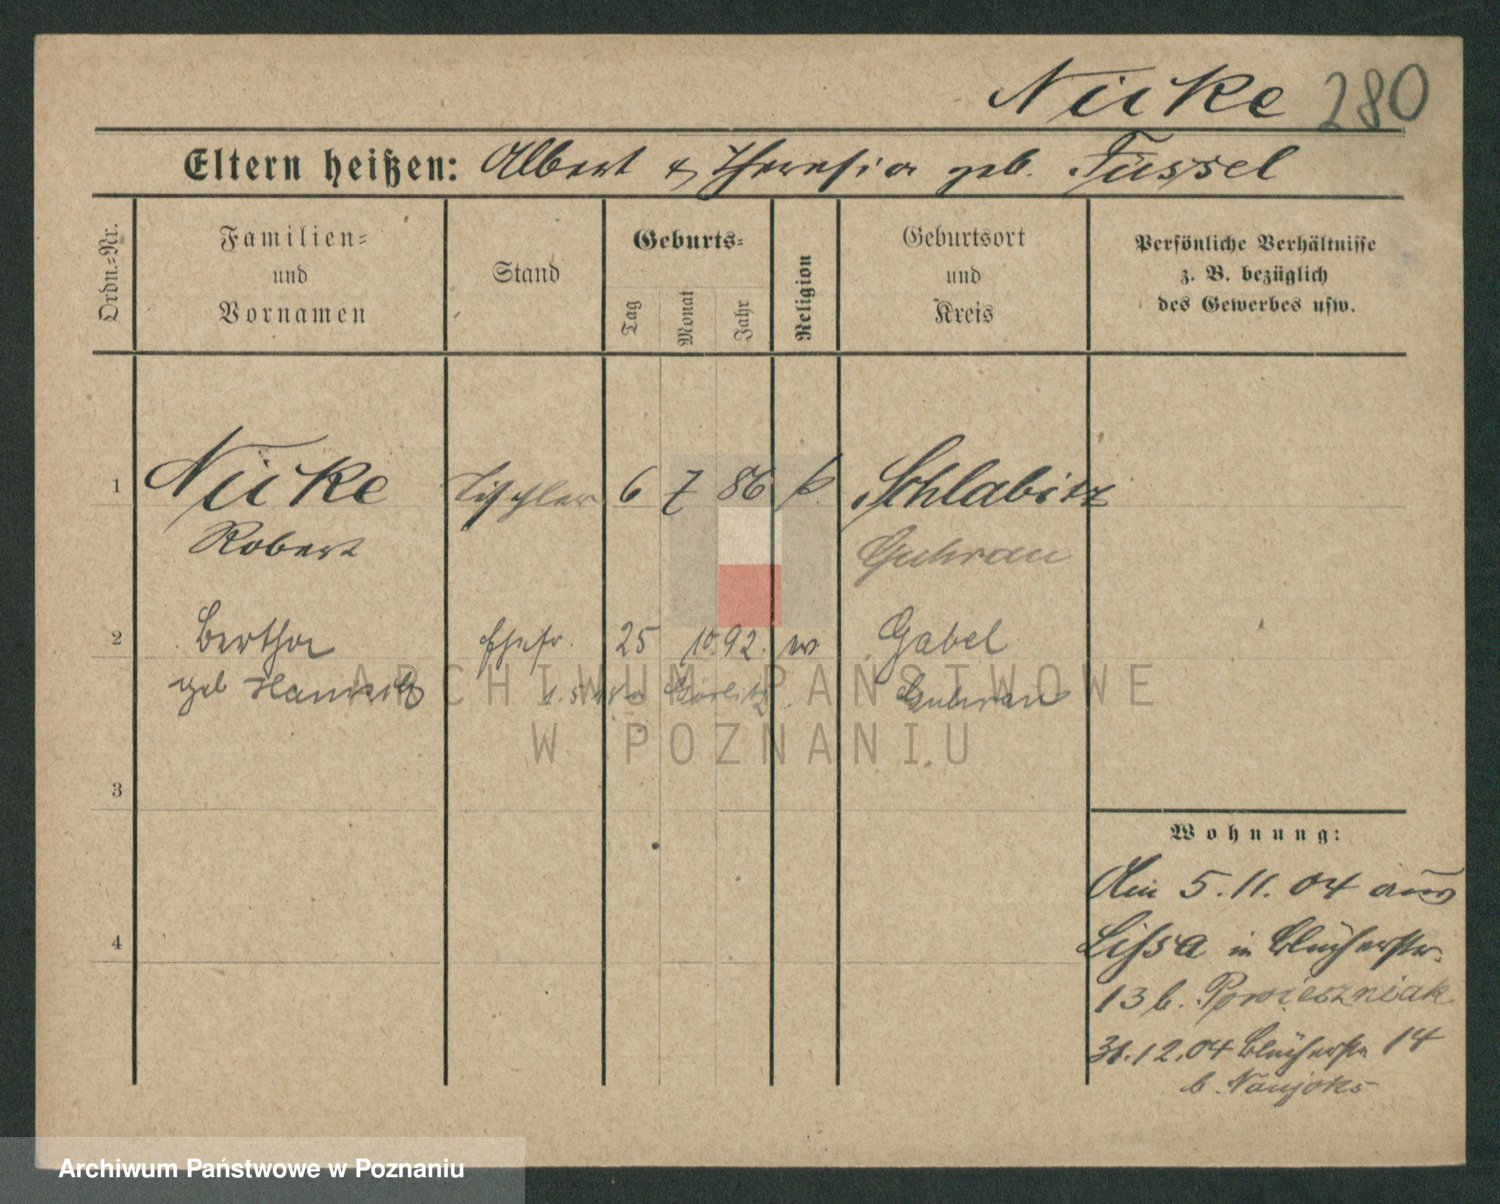 Nücke 280
Eltern heißen: Albert & Theresia geb. Füssel
Ordn.-Nr.
Familien-
und
Vornamen
Stand
Geburts-
Tag
Monat
Jahr
Religion
Geburtsort
und
Kreis
Persönliche Verhältnisse
z. B. bezüglich
des Gewerbes usw.
1 Nücke Tischler 6 7 86 k. Schlabitz
Robert Guhrau
2 Bertha Ehefr. 25 10. 92. w. Gabel
geb Guhrau
Görlitz
3
4
Wohnung:
Am 5.11.04 aus
Lissa in Blücherstr.
13 b. Powieszniak
31.12.04 Blücherstr 14
b. Naujoks
ARCHIWUM PAŃSTWOWE
W POZNANIU
Archiwum Państwowe w Poznaniu